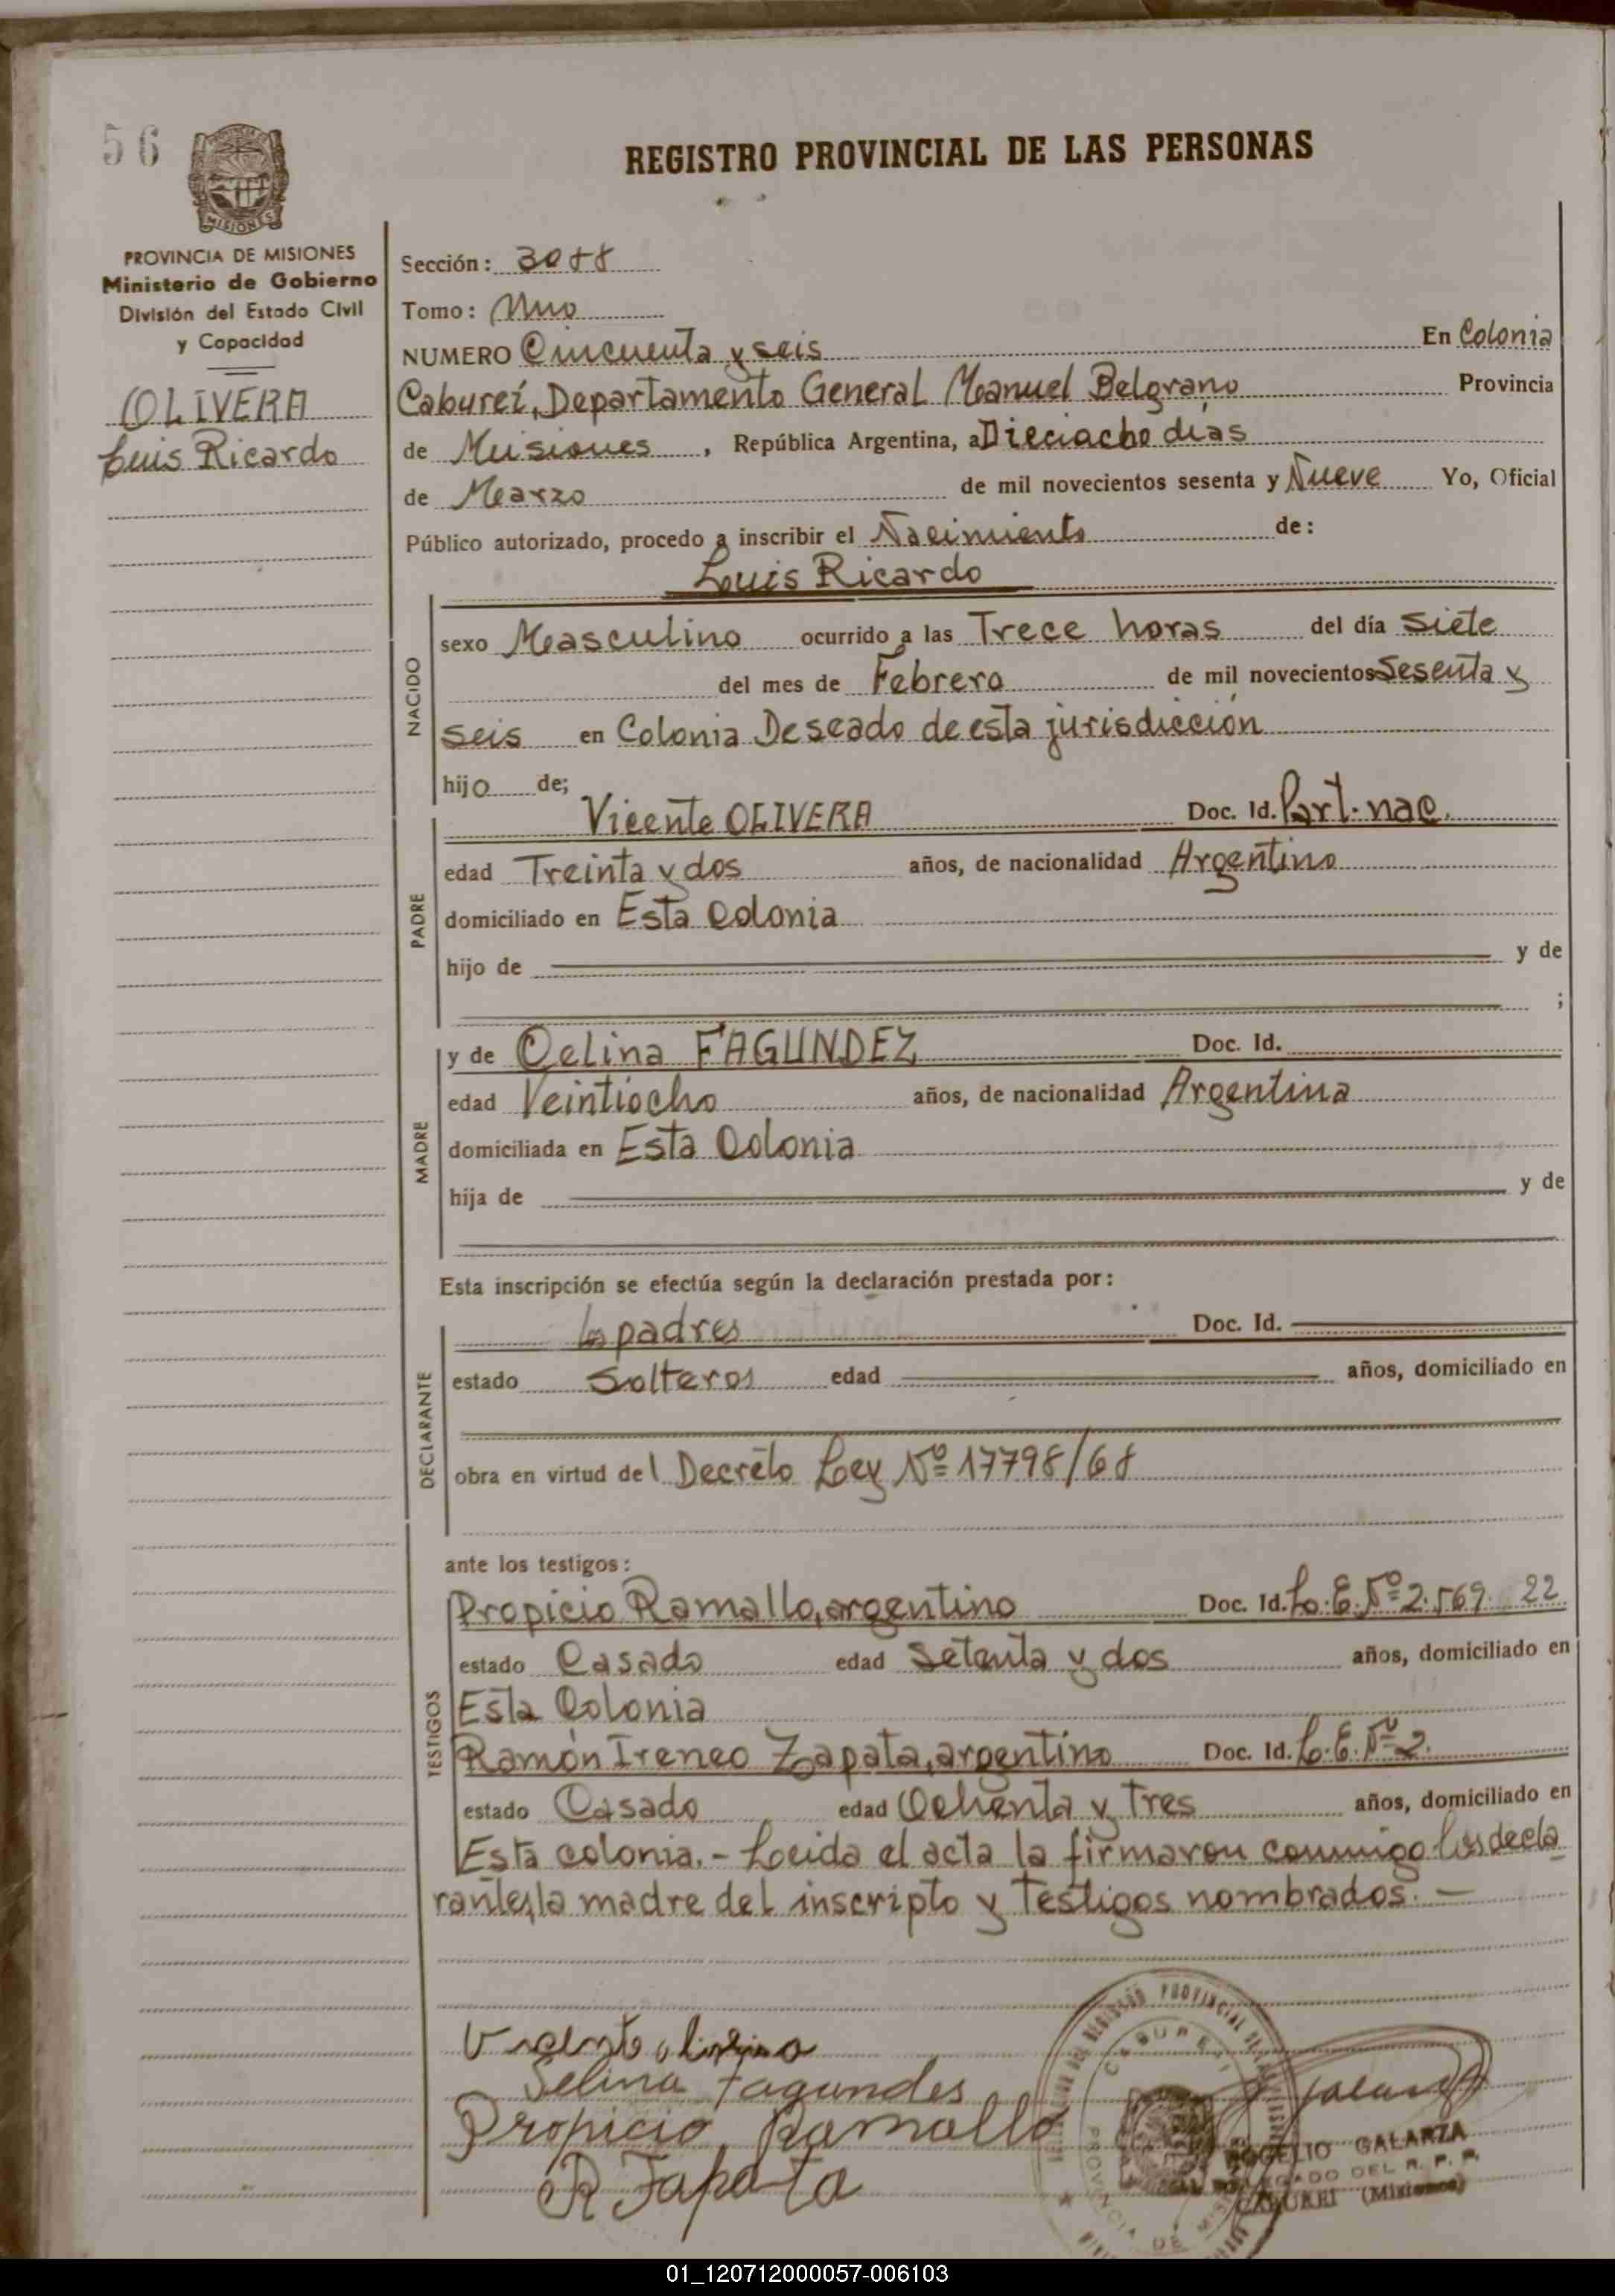 56
REGISTRO PROVINCIAL DE LAS PERSONAS
PROVINCIA DE MISIONES
Ministerio de Gobierno
División del Estado Civil
y Capacidad
OLIVERA
Luis Ricardo
Sección: 3088
Tomo: Uno
NUMERO Cincuenta y seis En Colonia
Cabureí, Departamento General Manuel Belgrano Provincia
de Misiones, República Argentina, a Dieciacho días
de Marzo de mil novecientos sesenta y Nueve Yo, Oficial
Público autorizado, procedo a inscribir el Nacimiento de:
Luis Ricardo
NACIDO
sexo Masculino ocurrido a las Trece horas del día siete
del mes de Febrero de mil novecientos Sesenta y
seis en Colonia Deseado de esta jurisdicción
hijo de;
PADRE
Vicente OLIVERA Doc. Id. Part. nac.
edad Treinta y dos años, de nacionalidad Argentino
domiciliado en Esta Colonia
hijo de y de
;
MADRE
y de Celina FAGUNDEZ Doc. Id.
edad Veintiocho años, de nacionalidad Argentina
domiciliada en Esta Colonia
hija de y de
Esta inscripción se efectúa según la declaración prestada por:
DECLARANTE
los padres Doc. Id.
estado Solteros edad años, domiciliado en
obra en virtud del Decreto Ley Nº 17798/68
TESTIGOS
ante los testigos:
Propicio Ramallo, argentino Doc. Id. L.E.Nº 2.569 22
estado Casado edad Setenta y dos años, domiciliado en
Esta Colonia
Ramón Ireneo Zapata, argentino Doc. Id. L.E.Nº 2.
estado Casado edad Ochenta y Tres años, domiciliado en
Esta colonia.- Leida el acta la firmaron conmigo los decla
rantes, la madre del inscripto y Testigos nombrados.-
Vicente olivera
Selina Fagundes
Propicio Ramallo
R Zapata
REGISTRO PROVINCIAL DE
CABUREI
PROVINCIA DE MISIONES
ROGELIO GALARZA
DELEGADO DEL R. P. P.
CABUREI (Misiones)
01_120712000057-006103